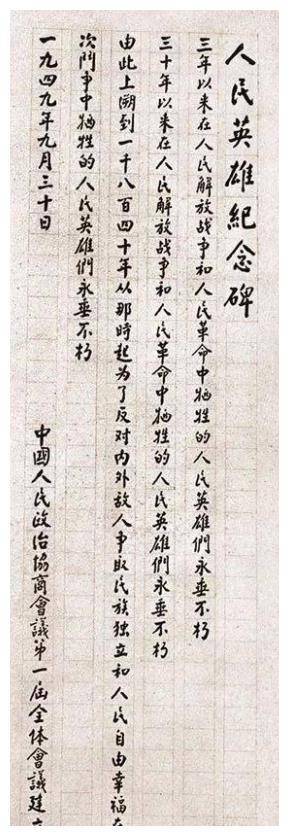 人民英雄紀念碑
三年以来在人民解放战争和人民革命中牺牲的人民英雄們永垂不朽
三十年以来在人民解放战争和人民革命中牺牲的人民英雄們永垂不朽
由此上溯到一千八百四十年从那時起为了反对内外敌人争取民族独立和人民自由幸福在
次鬥争中牺牲的人民英雄們永垂不朽
一九四九年九月三十日
中國人民政治協商會議第一届全体會議建